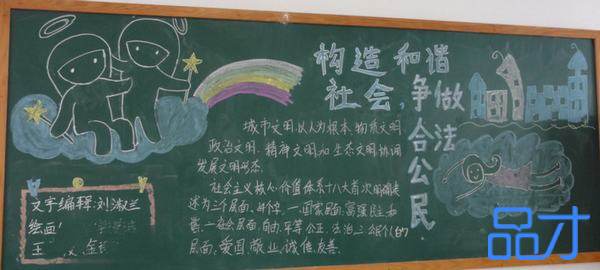 构造和谐
社会,
争做
合法
公民.
城市文明,以人为根本,物质文明
政治文明.精神文明和生态文明协同
发展文明形态.
社会主义核心价值体系十八大首次明确表
述为三个层面,
国家层面,富强民主和
谐,社会层面,自由,平等公正,法治
层面,爱国,敬业,诚信,友善.
文字编辑:刘淑兰
绘画:
王
品才